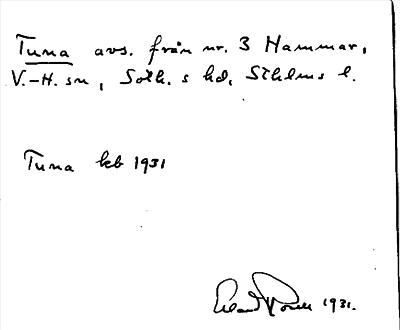 Tuna avs. från nr. 3 Hammar,
V.-H. sn, Soth. s hd, Sthlms l.
Tuna kb 1931
1931.